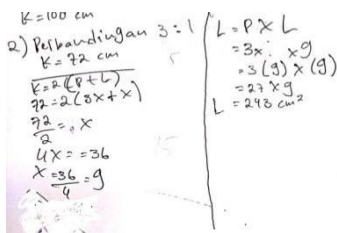 K = 100 cm
2) Perbandingan 3 : 1
K = 72 cm
K = 2 (P + L)
72 = 2 (3x + x)
72/2 = . x
4x = = 36
x = 36/4 = 9
L = P x L
= 3x . x 9
= 3 (9) x (9)
= 27 x 9
L = 243 cm²